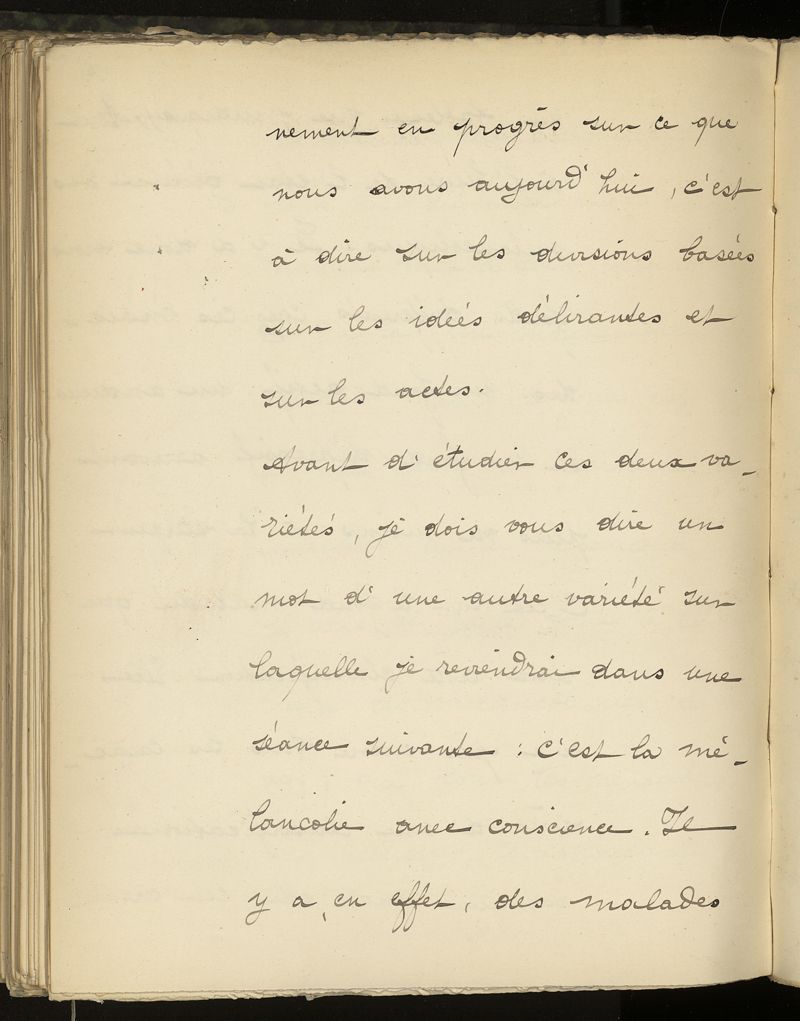 nement en progrès sur ce que
nous avons aujourd'hui, c'est
à dire sur les divisions basées
sur les idées délirantes et
sur les actes.
Avant d'étudier ces deux va-
riétés, je dois vous dire un
mot d'une autre variété sur
laquelle je reviendrai dans une
séance suivante : c'est la mé-
lancolie avec conscience. Il
y a, en effet, des malades